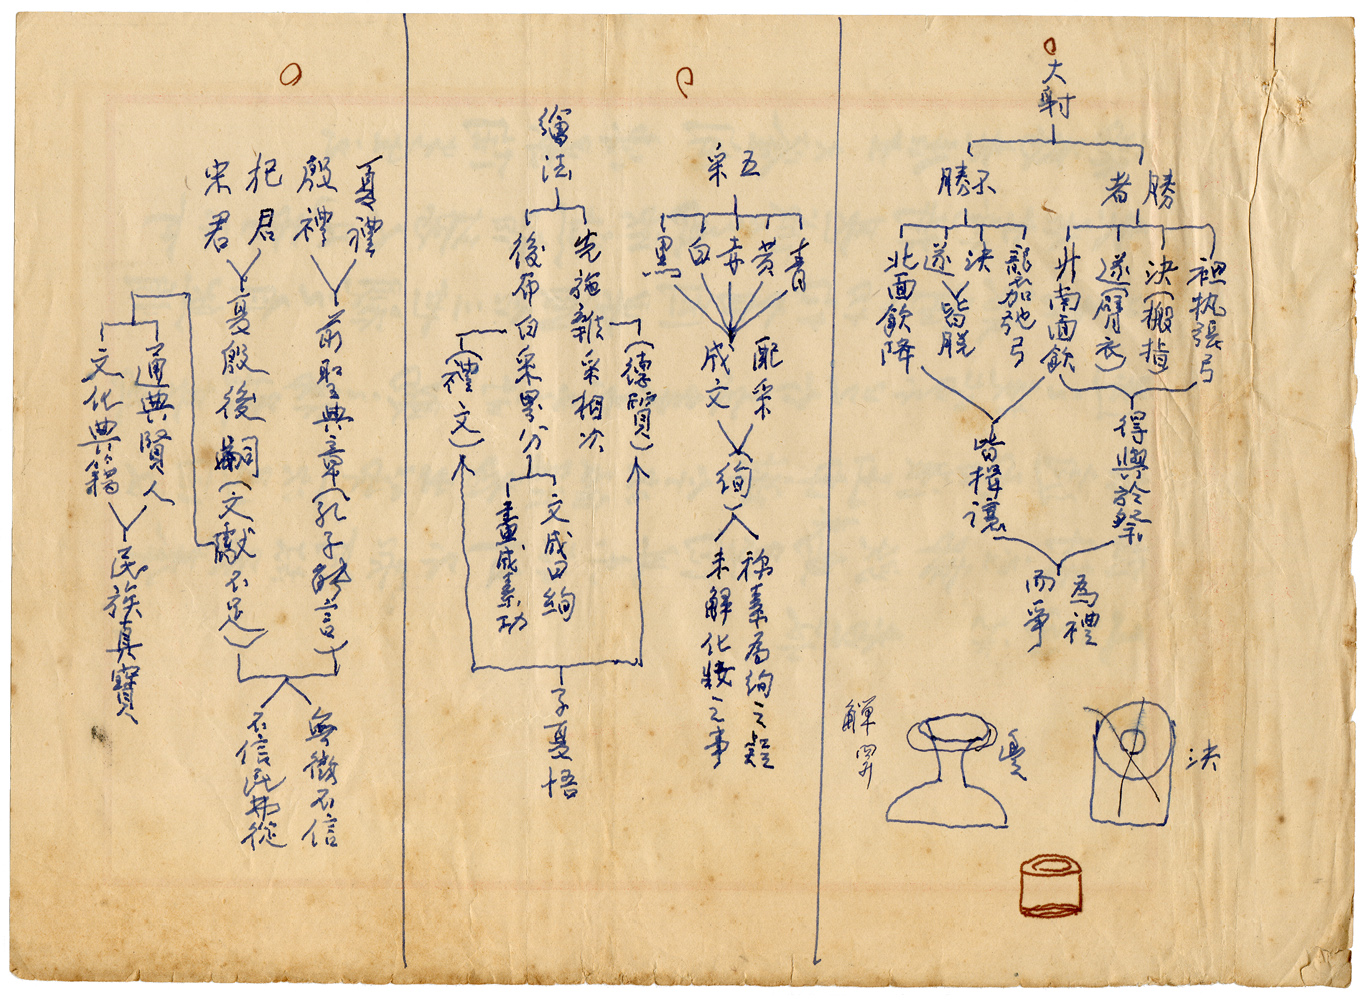 大射
勝者
袒执張弓
決（搬指）
遂（臂衣）
升南面飲
得與於祭
不勝
龍加弛弓
決
遂
皆脱
北面飲降
皆揖讓
為禮
而爭
決
豐
觶
四升
五采
青
黄
赤
白
黑
配采
成文
（絢）
称素為絢之疑
未解化妝之事
繪法
先施雜采相次
（德質）
後布白采界分
（禮文）
文成曰絢
畫成素功
子夏悟
夏禮
殷禮
前聖典章（孔子能言）
杞君
宋君
夏殷後嗣（文獻不足）
無徵不信
不信民弗從
通典賢人
文化典籍
民族真寶